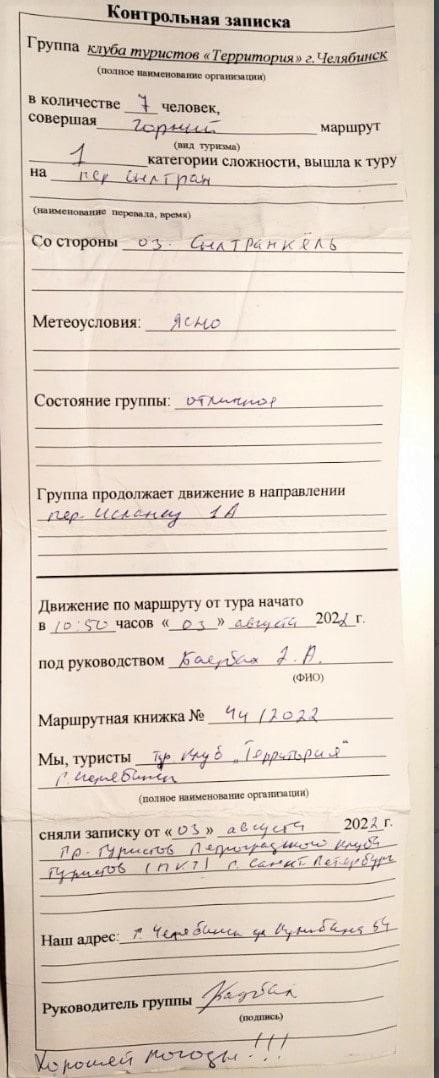 Контрольная записка
Группа клуба туристов «Территория» г.Челябинск
(полное наименование организации)
в количестве 7 человек,
совершая горный маршрут
(вид туризма)
1 категории сложности, вышла к туру
на пер Сылтран
(наименование перевала, время)
Со стороны оз. Сылтранкёль
Метеоусловия: ясно
Состояние группы: отличное
Группа продолжает движение в направлении
пер. 1А
Движение по маршруту от тура начато
в 10:50 часов «03» августа 2022 г.
под руководством
(ФИО)
Маршрутная книжка № 44/2022
Мы, туристы тур. клуб "Территория"
г. Челябинск
(полное наименование организации)
сняли записку от «03» августа 2022 г.
гр. туристов Петроградского клуба
туристов (ПКТ) г. Санкт Петербург
Наш адрес: г. Челябинск
Руководитель группы
(подпись)
Хорошей погоды!!!